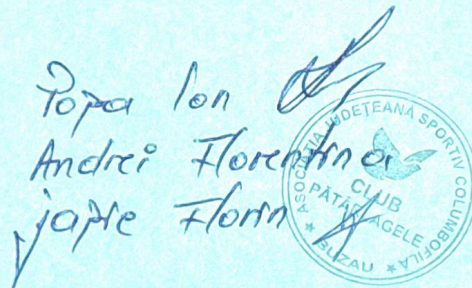 Popa Ion
Andrei Florentina
Japie Florin
ASOCIAȚIA JUDEȚEANĂ SPORTIV COLUMBOFILA
CLUB
PĂTÂRLAGELE
★ BUZAU ★